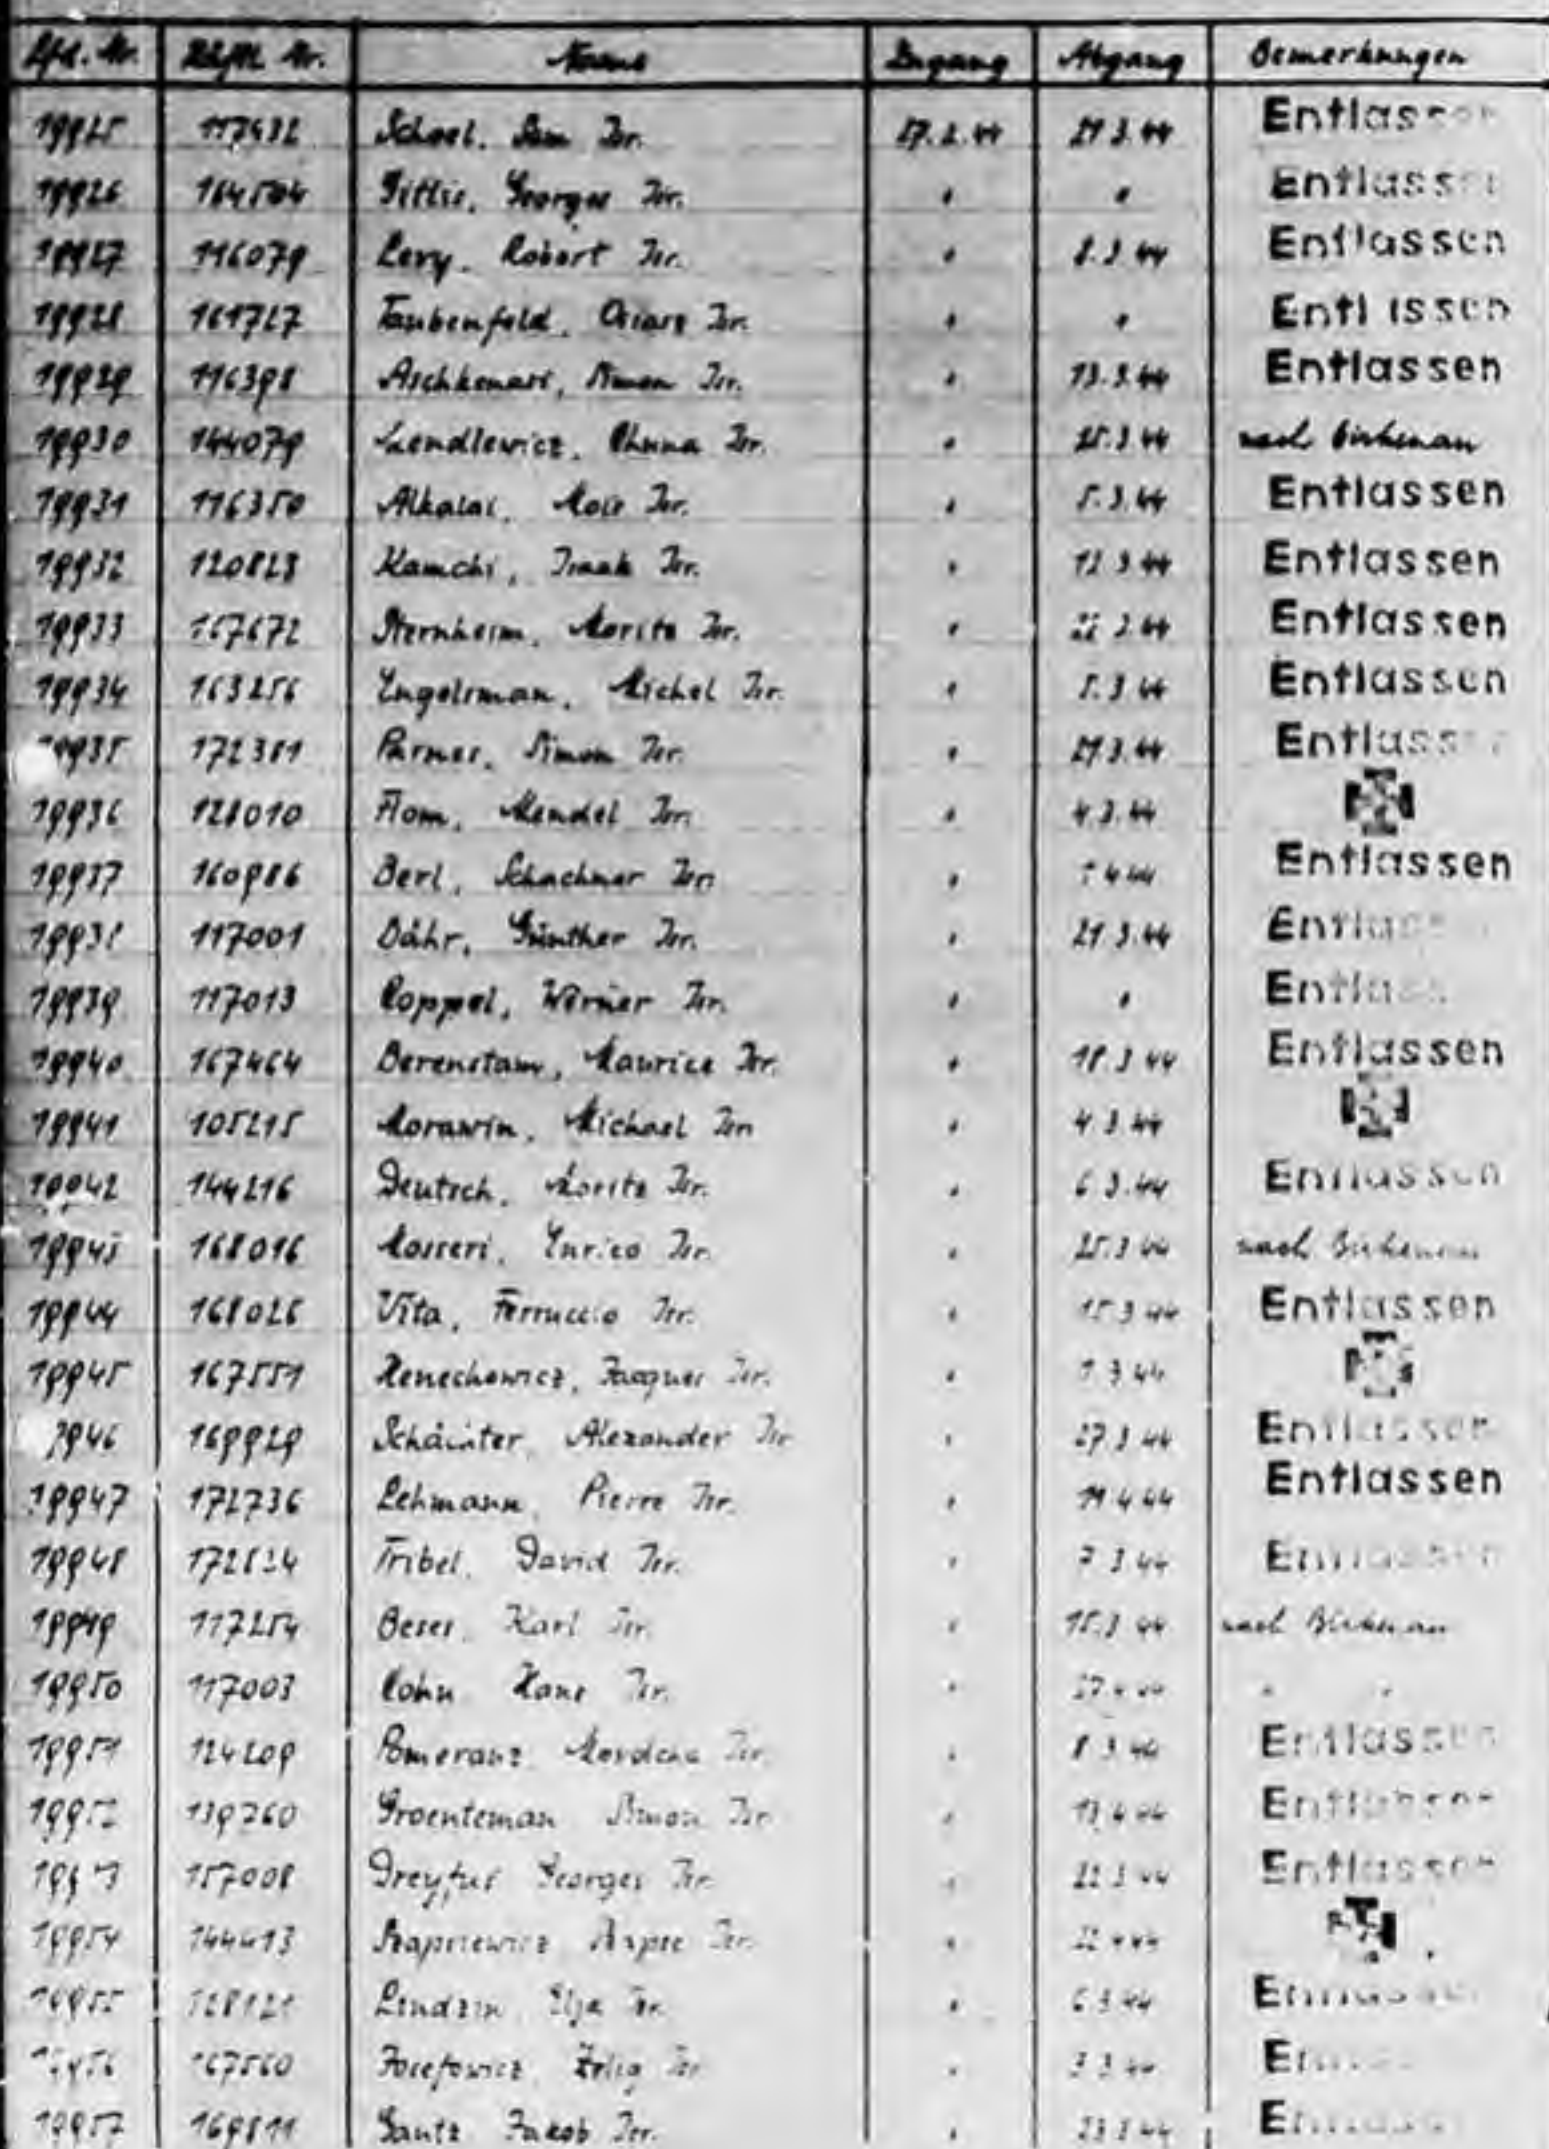 Lfd. Nr. Häftl. Nr. Name Zugang Abgang Bemerkungen
19925 117632 Schoel, Sam Isr. 27.2.44 21.3.44 Entlassen
19926 164504 Georges Isr. " " Entlassen
19927 116079 Levy, Robert Isr. " 8.3.44 Entlassen
19928 161727 Taubenfeld, Isr. " " Entlassen
19929 116398 Aschkenasi, Simon Isr. " 13.3.44 Entlassen
19930 144079 Lendlewicz, Chuna Isr. " 25.3.44 nach Birkenau
19931 116350 Alkalai, Mois Isr. " 5.3.44 Entlassen
19932 120823 Kamchi, Isaak Isr. " 12.3.44 Entlassen
19933 167672 Sternheim, Moritz Isr. " 22.2.44 Entlassen
19934 163256 Engelsman, Michel Isr. " 5.3.44 Entlassen
19935 172381 Parmes, Simon Isr. " 21.3.44 Entlassen
19936 128010 Flom, Mendel Isr. " 4.3.44
19937 160986 Berl, Schachner Isr. " 4.44 Entlassen
19938 117001 Bähr, Günther Isr. " 21.3.44 Entlassen
19939 117013 Coppel, Werner Isr. " " Entlassen
19940 167464 Berenstam, Maurice Isr. " 18.3.44 Entlassen
19941 105215 Morawin, Michael Isr. " 4.3.44
19942 144216 Deutsch, Moritz Isr. " 6.3.44 Entlassen
19943 168016 Mosseri, Enrico Isr. " 25.3.44 nach Birkenau
19944 168026 Vita, Ferruccio Isr. " 15.3.44 Entlassen
19945 167551 Henechowicz, Jacques Isr. " 1.3.44
19946 169929 Alexander Isr. " 27.3.44 Entlassen
19947 172736 Lehmann, Pierre Isr. " 19.4.44 Entlassen
19948 172834 Fribel, David Isr. " 7.3.44 Entlassen
19949 117254 Beses, Karl Isr. " 15.3.44 nach Birkenau
19950 117003 Cohn Hans Isr. " 27.4.44 " "
19951 124209 Pomeranz Mordcha Isr. " 8.3.44 Entlassen
19952 139260 Groenteman Simon Isr. " 13.4.44 Entlassen
19953 157008 Dreyfus Georges Isr. " 22.3.44 Entlassen
19954 144413 Isr. " 22.4.44
19955 128121 Lindzin Elja Isr. " 6.3.44 Entlassen
19956 167560 Josefowicz Zelig Isr. " 3.3.44 Entlassen
19957 169811 Gantz Jakob Isr. " 23.3.44 Entlassen